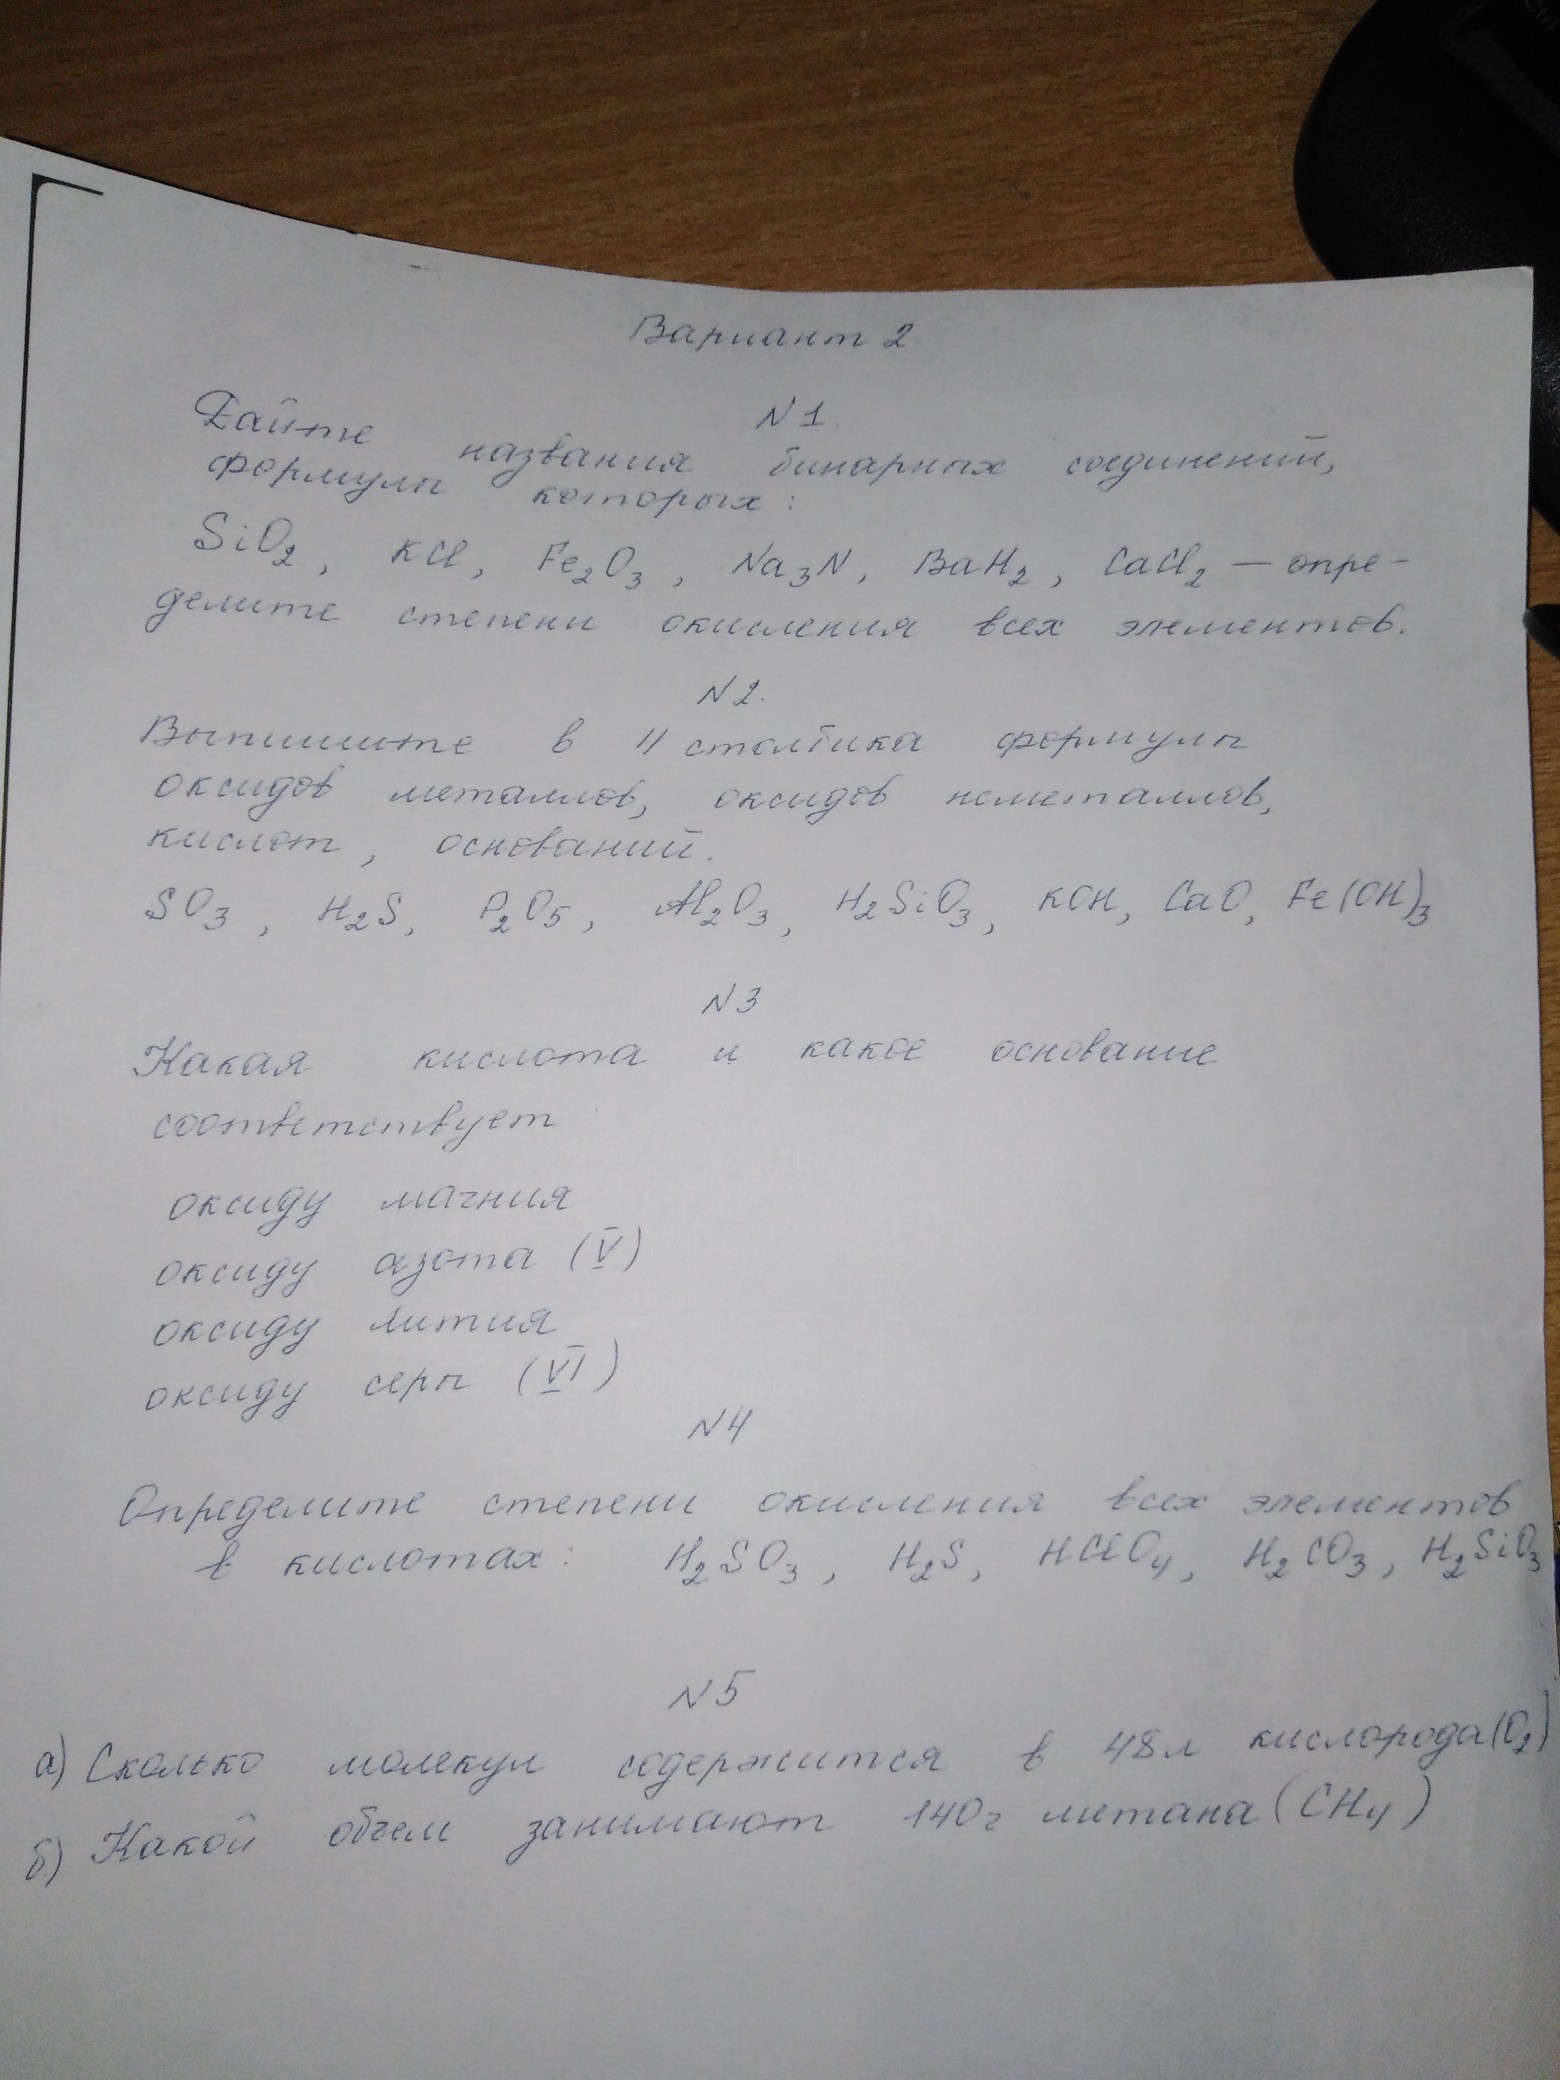 Вариант 2
N 1.
Дайте названия бинарных соединений,
формулы которых:
SiO₂, KCl, Fe₂O₃, Na₃N, BaH₂, CaCl₂ — опре-
делите степени окисления всех элементов.
N 2.
Выпишите в 4 столбика формулы
оксидов металлов, оксидов неметаллов,
кислот, оснований.
SO₃, H₂S, P₂O₅, Al₂O₃, H₂SiO₃, KOH, CaO, Fe(OH)₃
N 3
Какая кислота и какое основание
соответствует
оксиду магния
оксиду азота (V)
оксиду лития
оксиду серы (VI)
N 4
Определите степени окисления всех элементов
в кислотах: H₂SO₃, H₂S, HClO₄, H₂CO₃, H₂SiO₃
N 5
а) Сколько молекул содержится в 48л кислорода(O₂)
б) Какой объем занимают 140г метана (CH₄)